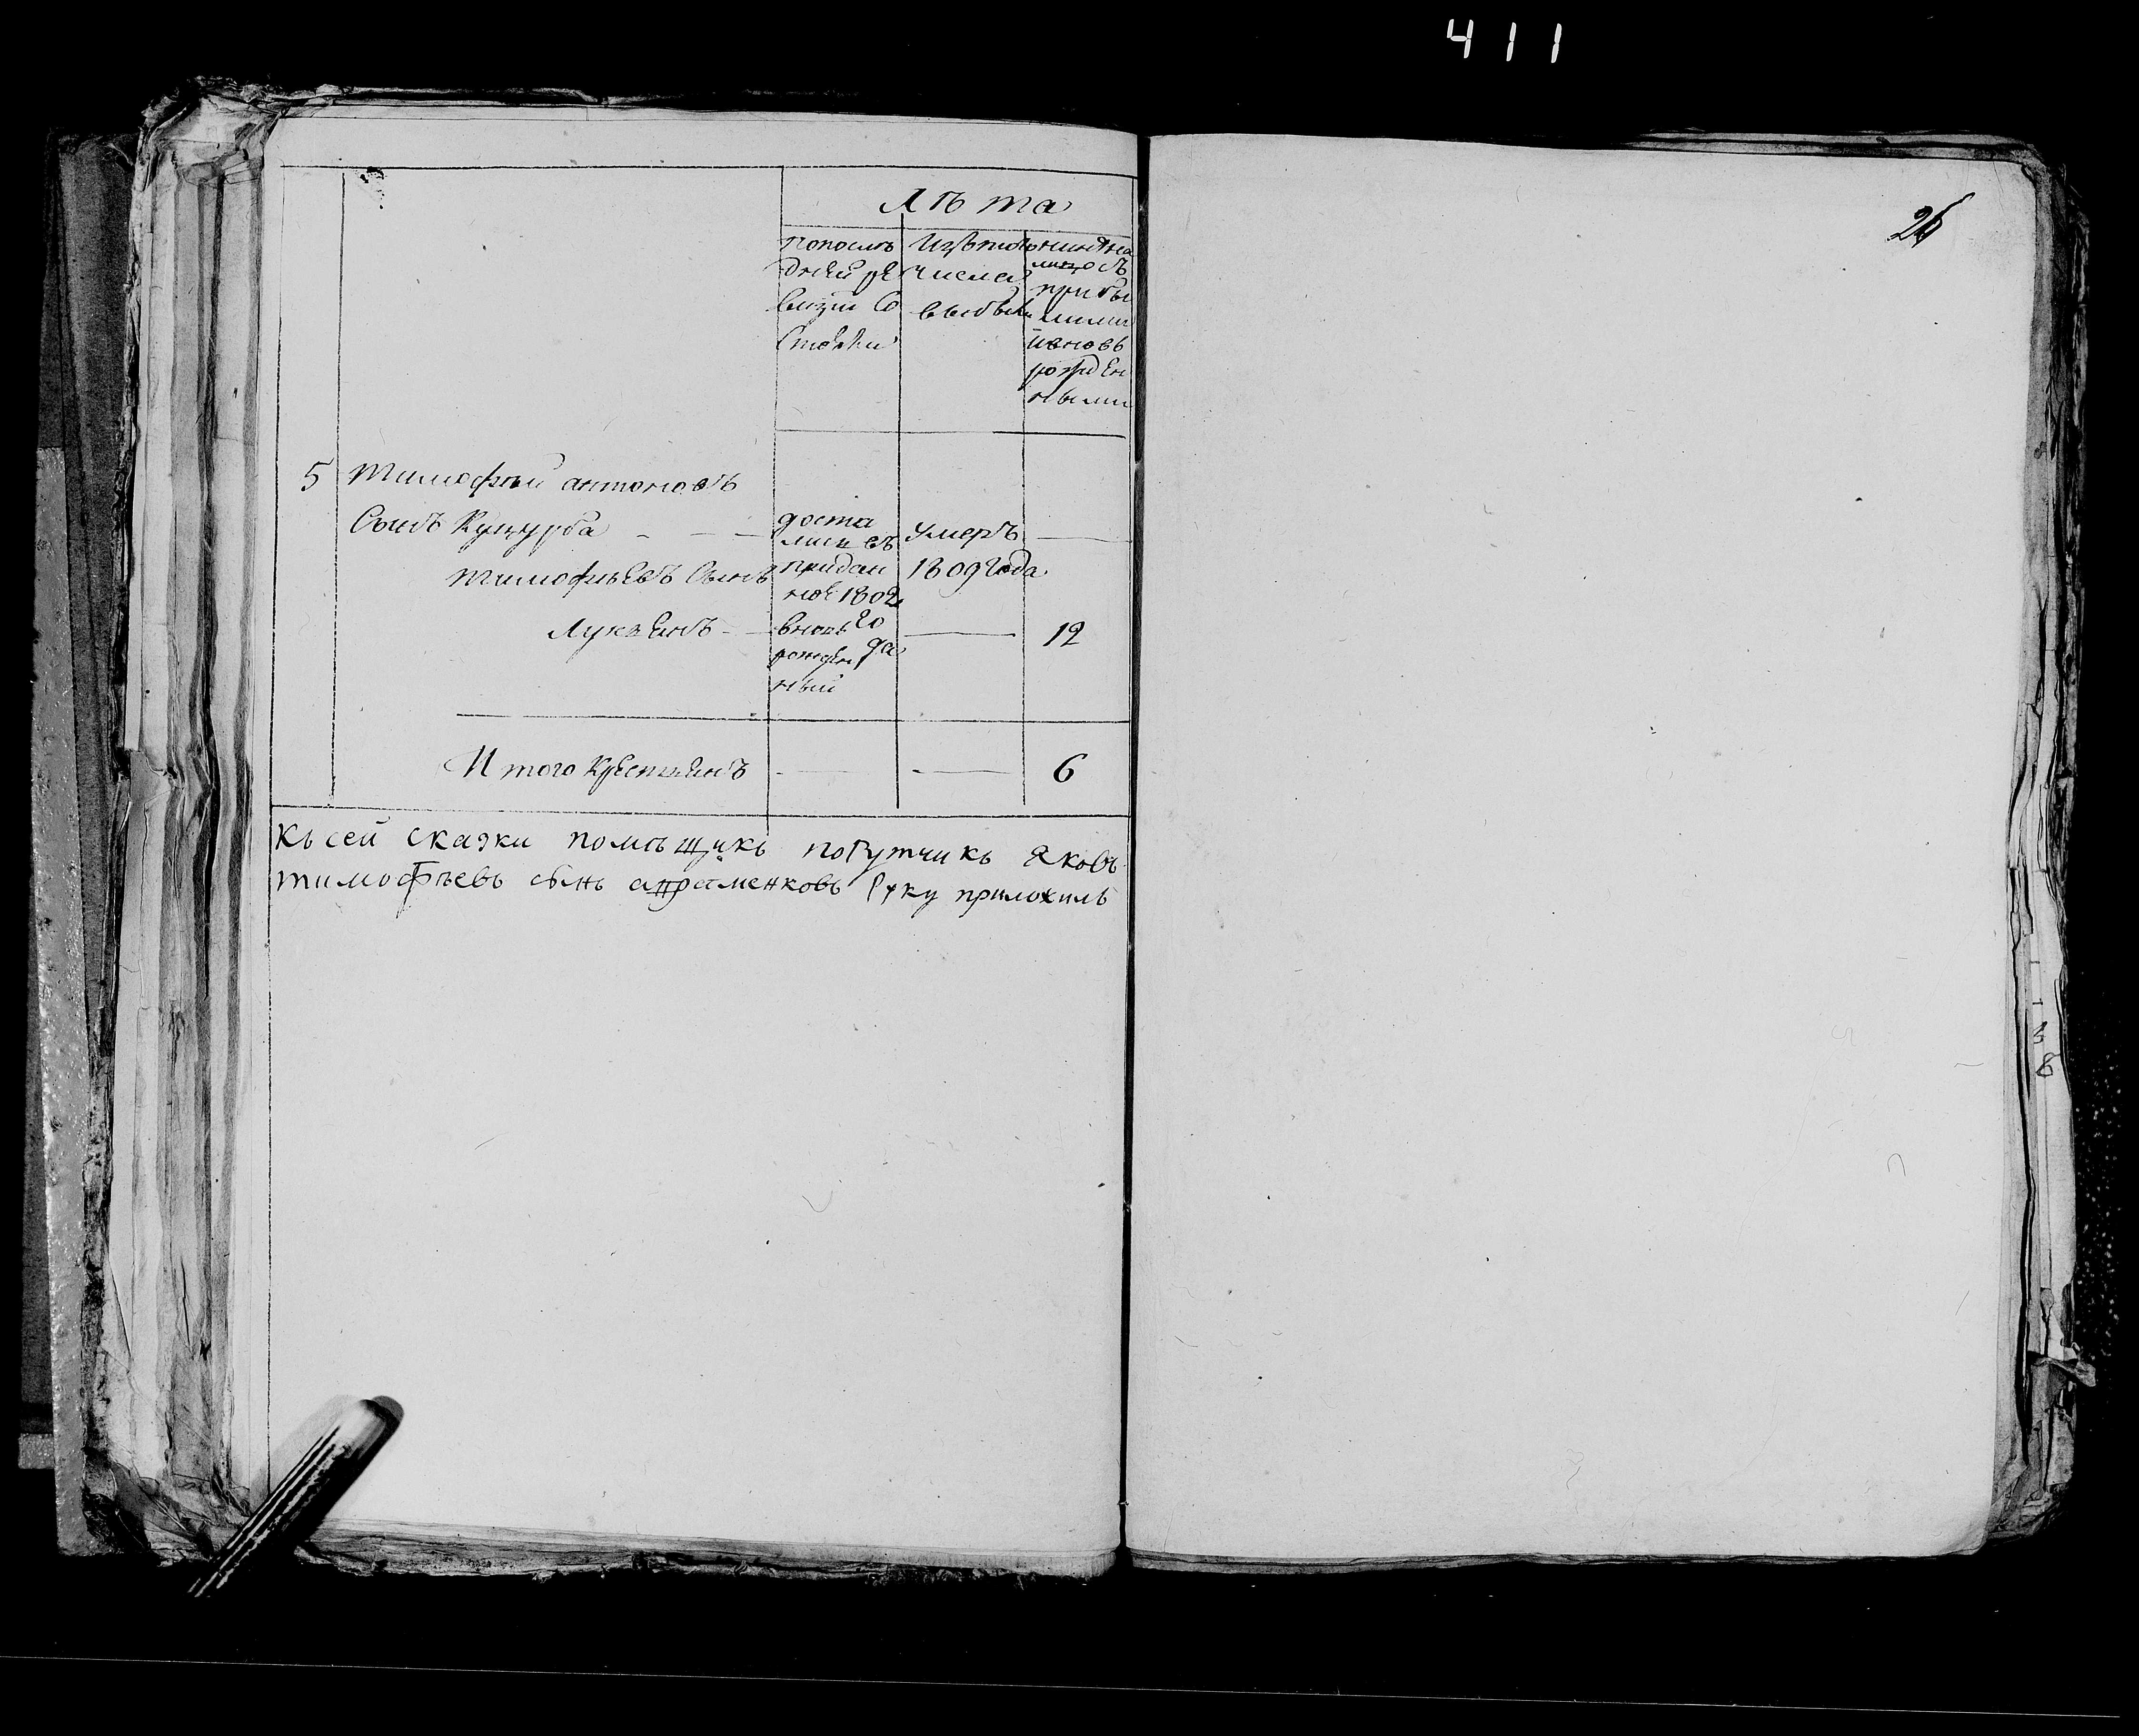 411
26
Лѣта
попослѣ
дней ре
визіи Со
Стояли
Изътого
числа
выбыли
нынѣна
лицо съ
прибы
лыми
ивновь
рожден
ными
5 Тимофѣй антоновъ
Сынъ Куцурба
доста
лися въ
придан
ное 1802
го
да
умеръ
1809 Года
Тимофѣевъ Сынъ
Лукьянъ
вновь
рожден
ный
12
Итого Крестьянъ 6
Къ сей сказки помѣщикъ порутчикъ Яковъ
тимофѣевъ сынъ руку приложилъ